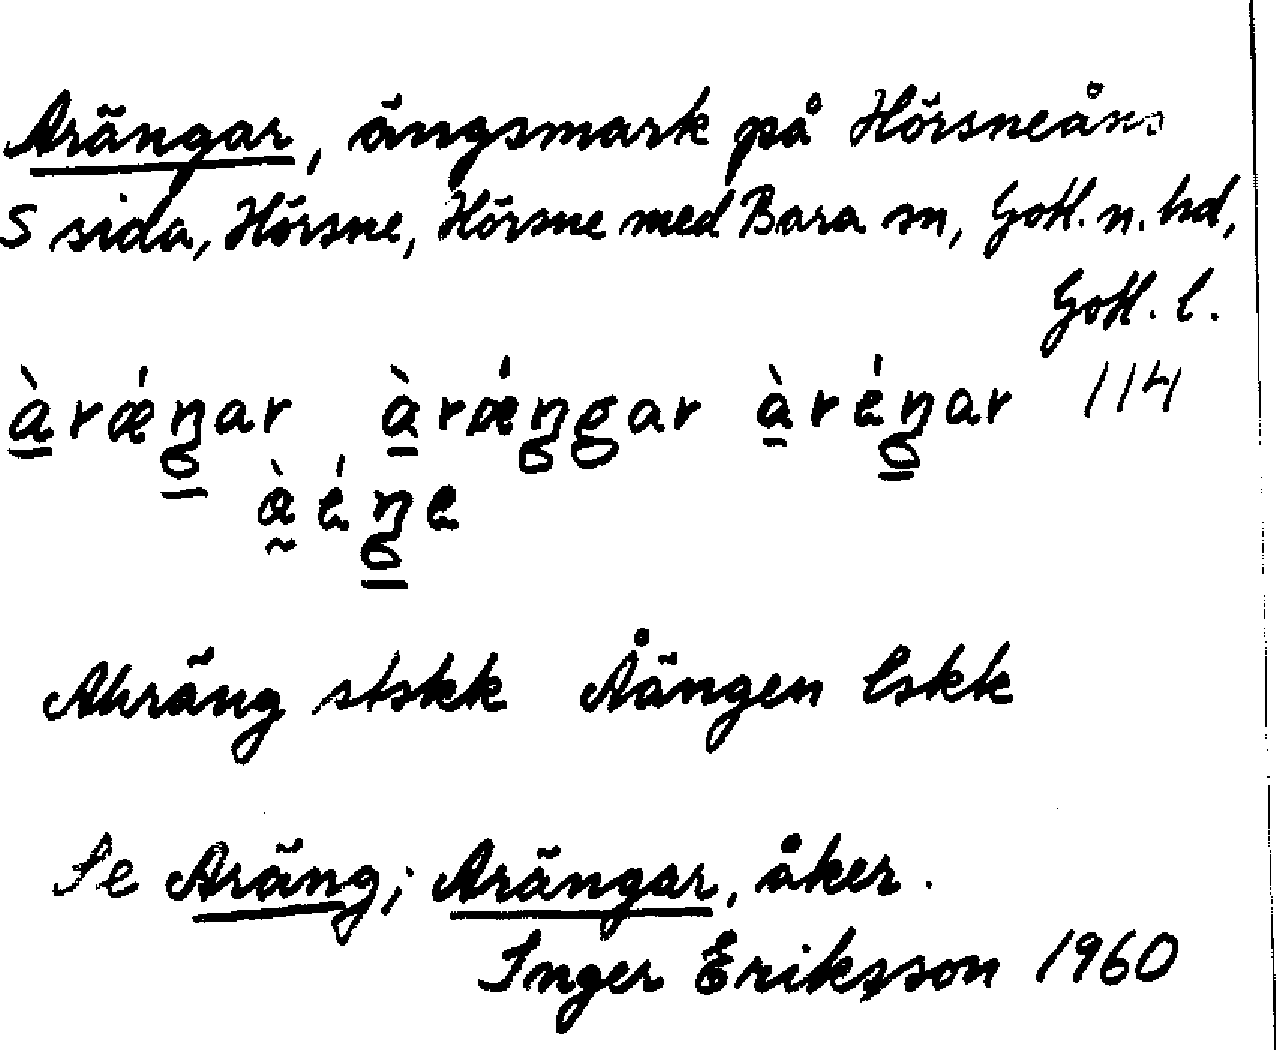 Arängar, ängsmark på Hörsneåns
S sida, Hörsne, Hörsne med Bara sn, Gotl. n. hd,
Gotl. l.
àrǽŋar àrǽŋgar àréŋar 114
àéŋe
Ahräng stskk Åängen lskk
Se Aräng; Arängar, åker.
Inger Eriksson 1960